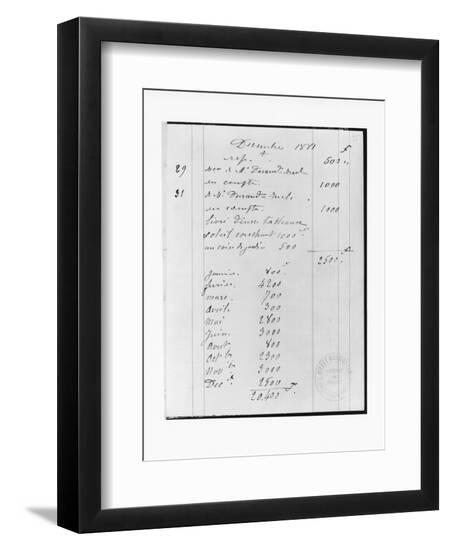 Decembre 1881 f
rep. 500
29 de Mr Durand-Ruel
en compte. 1000
31 de Mr Durand-Ruel
en compte. 1000
livré deux tableaux
soleil couchant 1000 f
un coin de jardin 500
2500 f
Janvier. 800 f
fevrier. 4200
mars. 700
avril. 300
Mai 2800
Juin. 3000
Aout 800
Oct bre 2300
Nov bre 3000
Dec. 2500
20,400 f